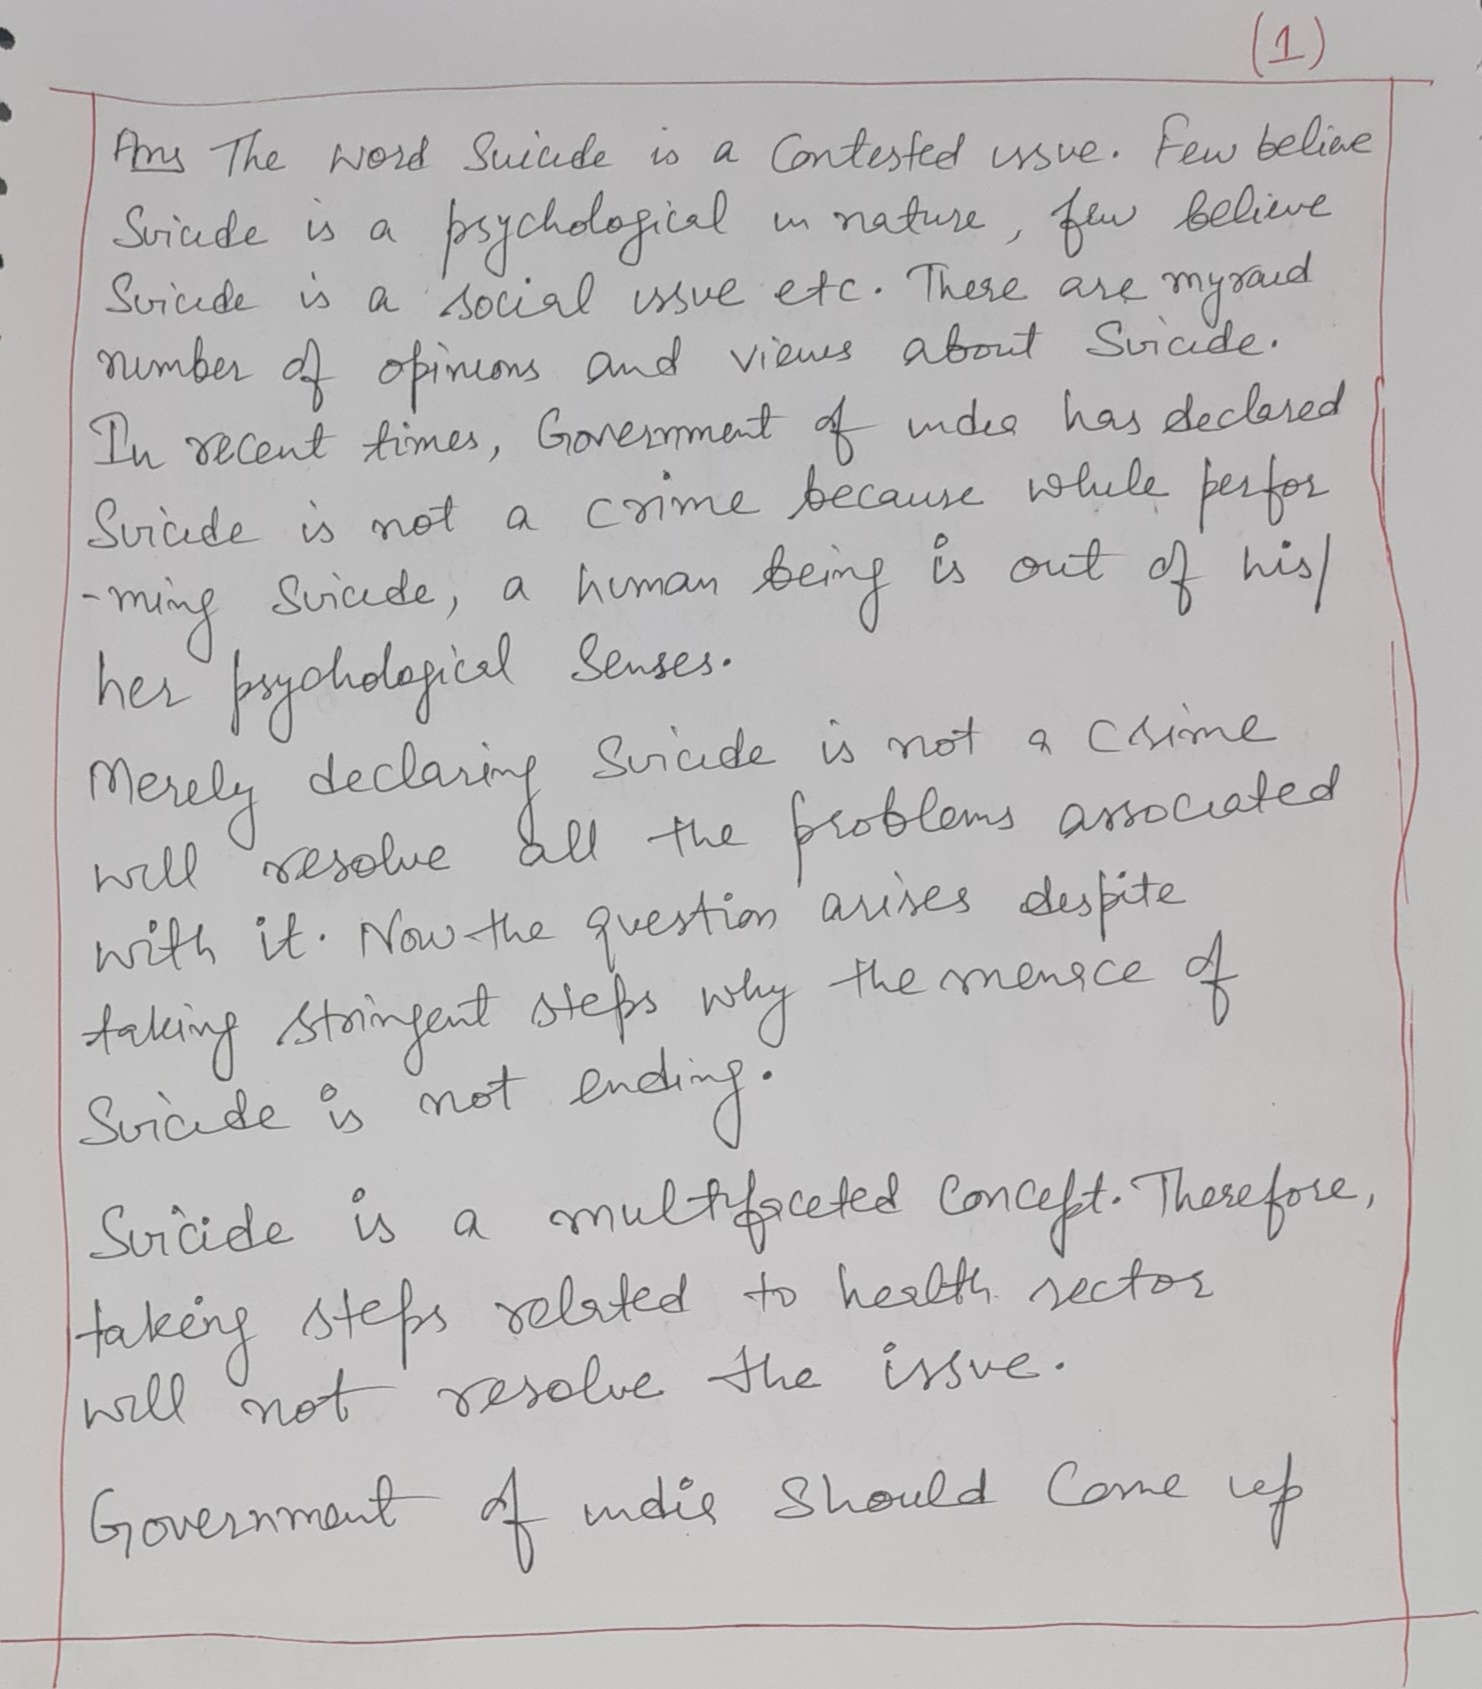 (1)
Ans The word Suicide is a Contested issue. Few believe
Suicide is a psychological in nature, few believe
Suicide is a social issue etc. There are myraid
number of opinions and views about Suicide.
In recent times, Government of india has declared
Suicide is not a crime because while perfor
-ming Suicide, a human being is out of his/
her psychological Senses.
Merely declaring Suicide is not a crime
will resolve all the problems associated
with it. Now the question arises despite
taking stringent steps why the menace of
Suicide is not ending.
Suicide is a multifaceted Concept. Therefore,
taking steps related to health sector
will not resolve the issue.
Government of india Should Come up